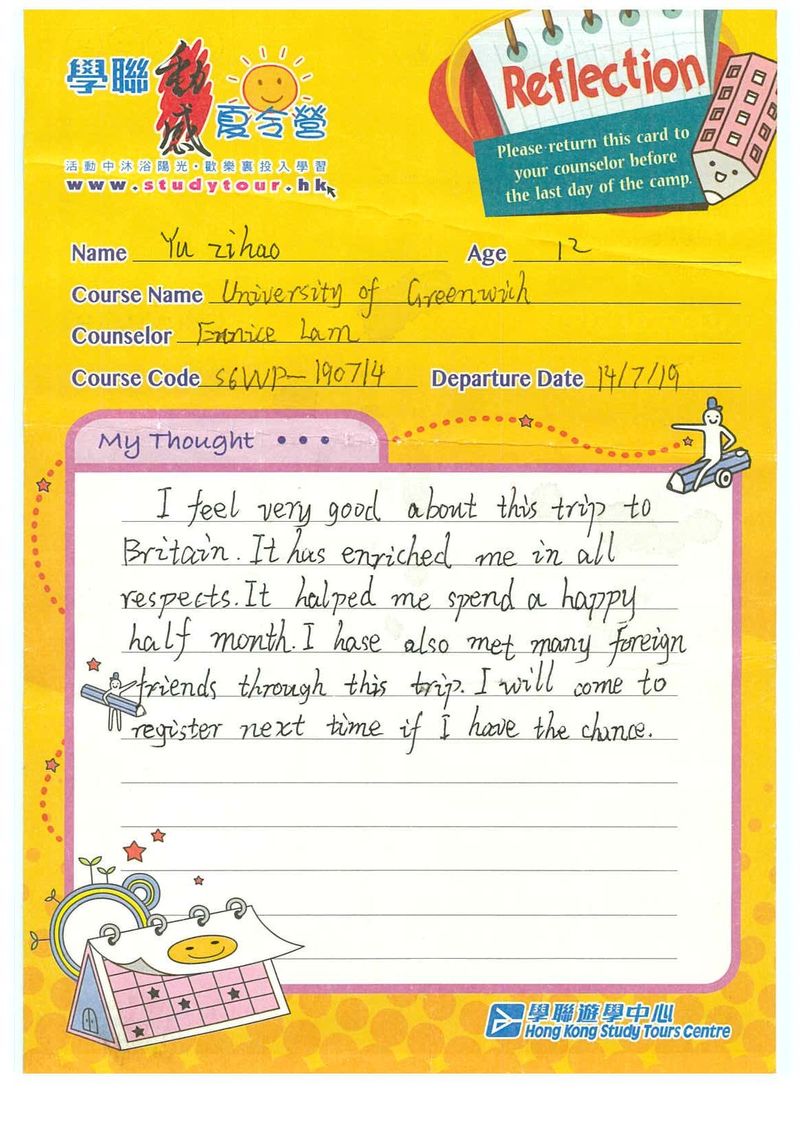 學聯動感夏令營
活動中沐浴陽光・歡樂裏投入學習
www.studytour.hk
Reflection
Please return this card to
your counselor before
the last day of the camp.
Name Yu zihao Age 12
Course Name University of Greenwich
Counselor Eunice Lam
Course Code S6WP-1907/4 Departure Date 14/7/19
My Thought • • •
I feel very good about this trip to
Britain. It has enriched me in all
respects. It halped me spend a happy
half month. I hase also met many foreign
friends through this trip. I will come to
register next time if I have the chance.
學聯遊學中心
Hong Kong Study Tours Centre